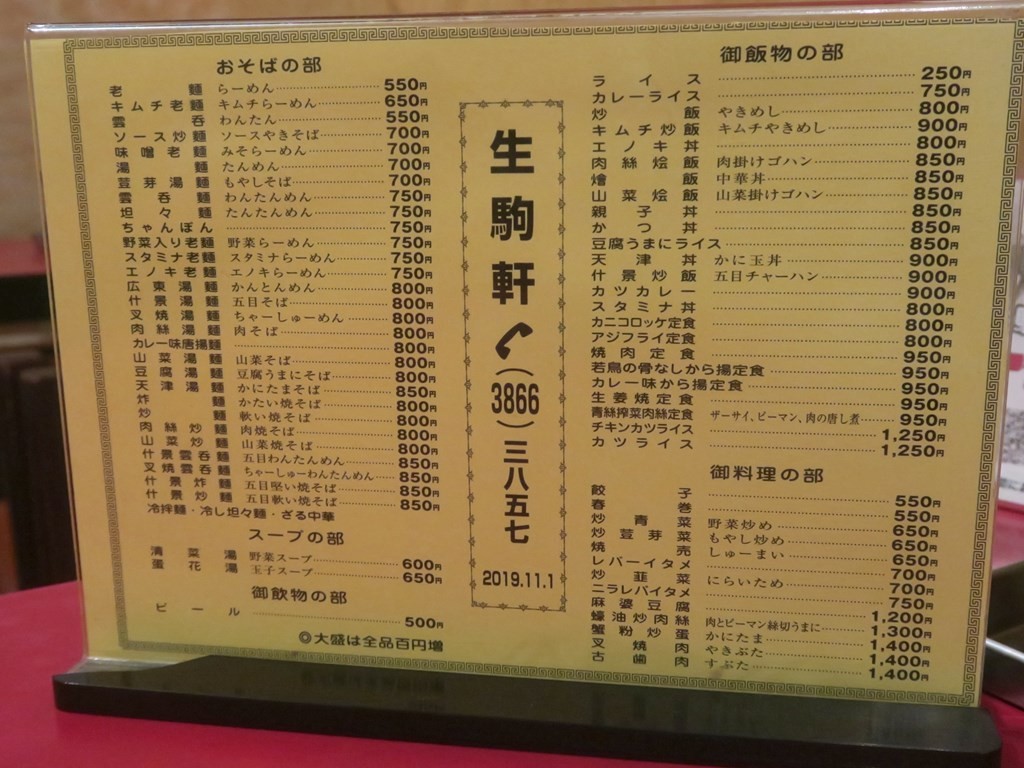 おそばの部
老麺 らーめん 550円
キムチ老麺 キムチらーめん 650円
雲呑 わんたん 550円
ソース炒麺 ソースやきそば 700円
味噌老麺 みそらーめん 700円
湯麺 たんめん 700円
荳芽湯麺 もやしそば 700円
雲呑麺 わんたんめん 750円
坦々麺 たんたんめん 750円
ちゃんぽん 750円
野菜入り老麺 野菜らーめん 750円
スタミナ老麺 スタミナらーめん 750円
エノキ老麺 エノキらーめん 750円
広東湯麺 かんとんめん 800円
什景湯麺 五目そば 800円
叉焼湯麺 ちゃーしゅーめん 800円
肉絲湯麺 肉そば 800円
カレー味唐揚麺 800円
山菜湯麺 山菜そば 800円
豆腐湯麺 豆腐うまにそば 800円
天津湯麺 かにたまそば 850円
炸麺 かたい焼そば 800円
炒麺 軟い焼そば 800円
肉絲炒麺 肉焼そば 800円
山菜炒麺 山菜焼そば 800円
什景雲呑麺 五目わんたんめん 850円
叉焼雲呑麺 ちゃーしゅーわんたんめん 850円
什景炸麺 五目堅い焼そば 850円
什景炒麺 五目軟い焼そば 850円
冷拌麺・冷し坦々麺・ざる中華
スープの部
清菜湯 野菜スープ 600円
蛋花湯 玉子スープ 650円
御飲物の部
ビール 500円
◎大盛は全品百円増
生駒軒
(3866)三八五七
2019.11.1
御飯物の部
ライス 250円
カレーライス 750円
炒飯 やきめし 800円
キムチ炒飯 キムチやきめし 900円
エノキ丼 800円
肉絲烩飯 肉掛けゴハン 850円
燴飯 中華丼 850円
山菜烩飯 山菜掛けゴハン 850円
親子丼 850円
かつ丼 850円
豆腐うまにライス 850円
天津丼 かに玉丼 900円
什景炒飯 五目チャーハン 900円
カツカレー 900円
スタミナ丼 800円
カニコロッケ定食 800円
アジフライ定食 800円
焼肉定食 950円
若鳥の骨なしから揚定食 950円
カレー味から揚定食 950円
生姜焼定食 950円
青絲搾菜肉絲定食 ザーサイ、ピーマン、肉の唐し煮 950円
チキンカツライス 1,250円
カツライス 1,250円
御料理の部
餃子 550円
春巻 550円
炒青菜 野菜炒め 650円
炒荳芽菜 もやし炒め 650円
焼売 しゅーまい 650円
レバーイタメ 700円
炒韮菜 にらいため 700円
ニラレバイタメ 750円
麻婆豆腐 1,200円
蠔油炒肉絲 肉とピーマン絲切うまに 1,300円
蟹粉炒蛋 かにたま 1,400円
叉焼肉 やきぶた 1,400円
古歯肉 すぶた 1,400円